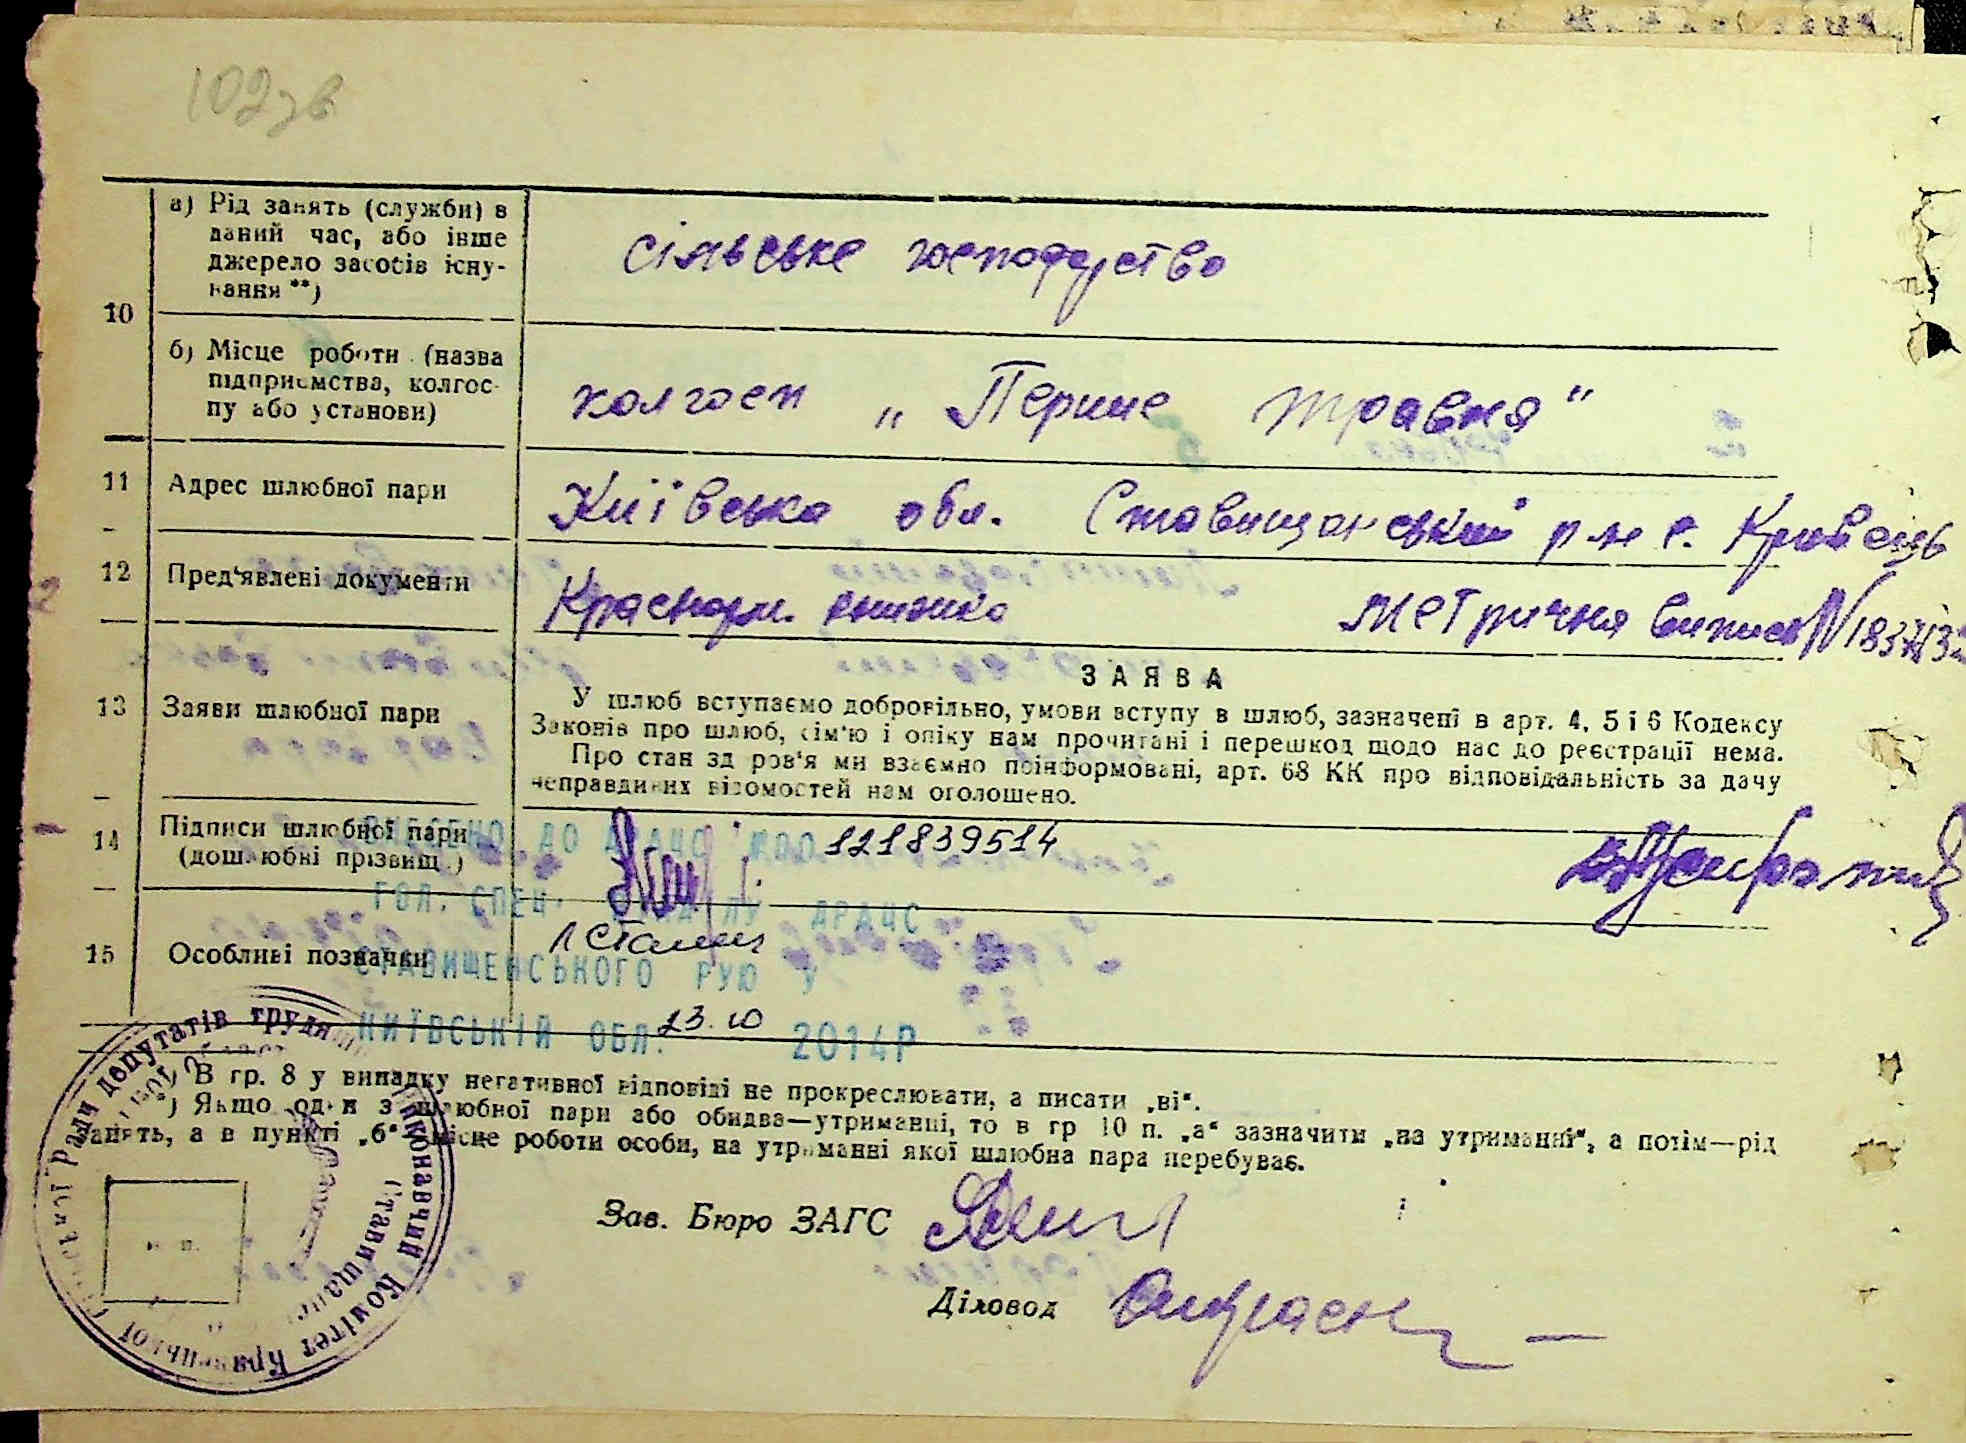 102зв
а) Рід занять (служби) в
даний час, або інше
джерело засобів існу-
вання **)
сільське господарство
10
б) Місце роботи (назва
підприємства, колгос-
пу або установи)
колгосп „Перше травня"
11 Адрес шлюбної пари
Київська обл. Ставищанський р-н с. Кривець
12 Пред'явлені документи
Красноарм. книжка метрична випись N
13 Заяви шлюбної пари
ЗАЯВА
У шлюб вступаємо добровільно, умови вступу в шлюб, зазначені в арт. 4, 5 і 6 Кодексу
Законів про шлюб, сім'ю і опіку нам прочитані і перешкод щодо нас до реєстрації нема.
Про стан здоров'я ми взаємно поінформовані, арт. 68 КК про відповідальність за дачу
неправдивих відомостей нам оголошено.
14 Підписи шлюбної пари
(дошлюбні прізвищ.)
ВНЕСЕНО ДО ДРАЦС 00121839514
ГОЛ. СПЕЦ. ВІДДІЛУ ДРАЦС
15 Особливі позначки
СТАВИЩЕНСЬКОГО РУЮ У
КИЇВСЬКІЙ ОБЛ. 23.10 2014Р
*) В гр. 8 у випадку негативної відповіді не прокреслювати, а писати „ні".
**) Якщо один з шлюбної пари або обидва—утриманні, то в гр 10 п. „а" зазначити „на утриманні", а потім—рід
занять, а в пункті „б" місце роботи особи, на утриманні якої шлюбна пара перебуває.
Зав. Бюро ЗАГС
Діловод
м. п.
Виконавчий Комітет Кривецької сільської Ради депутатів трудящих